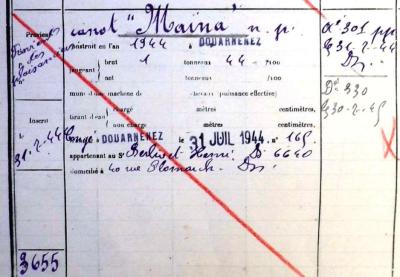 canot "Maïna" n. p.
construit en l'an 1944 à DOUARNENEZ
jaugeant brut 1 tonneaux 44 /100
net tonneaux /100
muni d'une machine de chevaux (puissance effective)
Tirant d'eau chargé mètres centimètres,
non chargé mètres centimètres.
Congé DOUARNENEZ le 31 JUIL 1944 n° 165
appartenant au Sr Henri Dz 6640
domicilié à 40 rue Plomarch. Dz.
Plaisance
Inscrit
à
31.7.44
3655
n° 301 pp
31.7.44
Dz
Dz 330